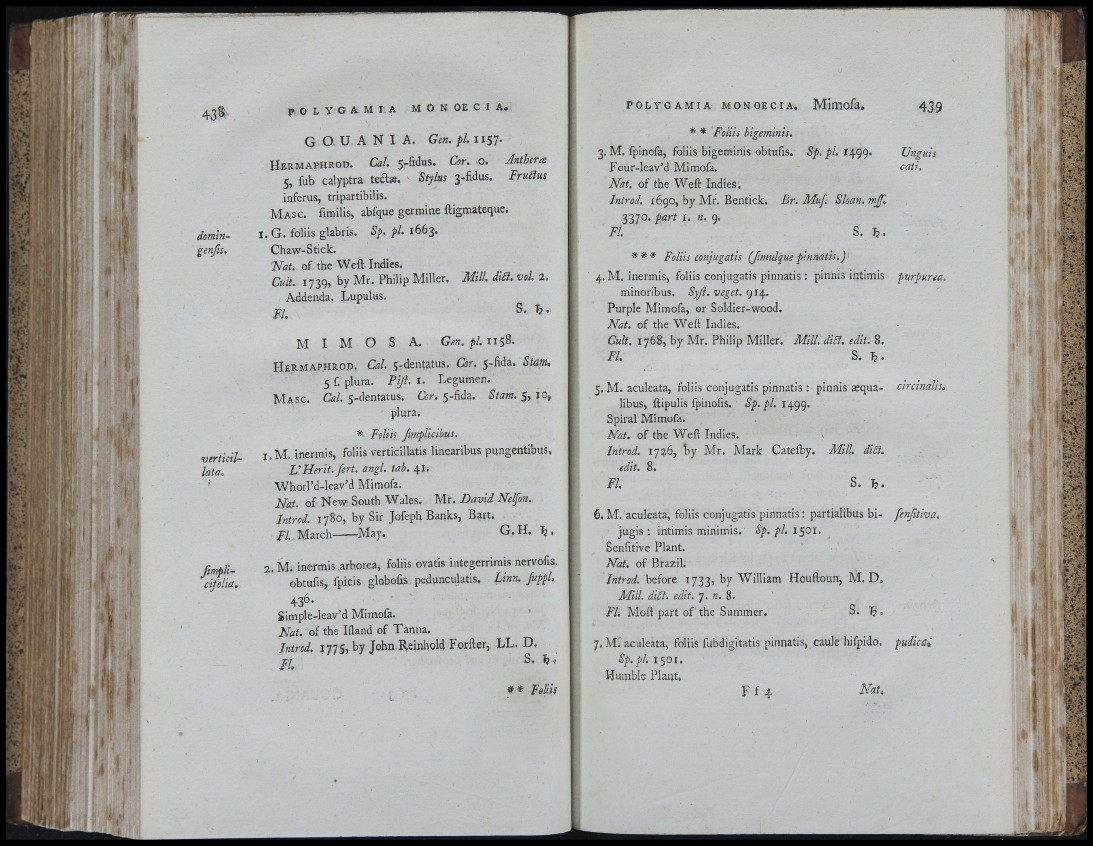 438 POLYGAMIA MONOECIA.
GOUANIA. Gen. pl. 1157.
HERMAPHROD. Cal. 5-fidus. Cor. 0. Antheræ
5, ſub calyptra tectæ. Stylus 3-fidus. Fructus
inferus, tripartibilis.
MASC. ſimilis, abſque germine ſtigmateque.
domin- 1. G. foliis glabris. Sp. pl. 1663.
genſis. Chaw-Stick.
Nat. of the Weſt Indies.
Cult. 1739, by Mr. Philip Miller. Mill. dict. vol. 2.
Addenda. Lupulus.
Fl. S. ♄.
MIMOSA. Gen. pl. 1158.
HERMAPHROD. Cal. 5-dentatus. Cor. 5-fida. Stam.
5 ſ. plura. Piſt. 1. Legumen.
MASC. Cal. 5-dentatus. Cor. 5-fida. Stam. 5, 10,
plura.
* Foliis ſimplicibus.
verticil- 1. M. inermis, foliis verticillatis linearibus pungentibus.
lata. L'Herit. ſert. angl. tab. 41.
Whorl'd-leav'd Mimoſa.
Nat. of New South Wales. Mr. David Nelſon.
Introd. 1780, by Sir Joſeph Banks, Bart.
Fl. March——May. G. H. ♄.
ſimpli- 2. M. inermis arborea, foliis ovatis integerrimis nervoſis
cifolia. obtuſis, ſpicis globoſis pedunculatis. Linn. ſuppl.
436.
Simple-leav'd Mimoſa.
Nat. of the Iſland of Tanna.
Introd. 1775, by John Reinhold Forſter, LL. D.
Fl. S. ♄.
** Foliis
POLYGAMIA MONOECIA. Mimoſa. 439
** Foliis bigeminis.
3. M. ſpinoſa, foliis bigeminis obtuſis. Sp. pl. 1499. Unguis
Four-leav'd Mimoſa. cati.
Nat. of the Weſt Indies.
Introd. 1690, by Mr. Bentick. Br. Muſ. Sloan. mſſ.
3370. part 1. n. 9.
Fl. S. ♄.
*** Foliis conjugatis (ſimulque pinnatis.)
4. M. inermis, foliis conjugatis pinnatis: pinnis intimis purpurea.
minoribus. Syſt. veget. 914.
Purple Mimoſa, or Soldier-wood.
Nat. of the Weſt Indies.
Cult. 1768, by Mr. Philip Miller. Mill. dict. edit. 8.
Fl. S. ♄.
5. M. aculeata, foliis conjugatis pinnatis: pinnis æqua- circinalis.
libus, ſtipulis ſpinoſis. Sp. pl. 1499.
Spiral Mimoſa.
Nat. of the Weſt Indies.
Introd. 1726, by Mr. Mark Cateſby. Mill. dict.
edit. 8.
Fl. S. ♄.
6. M. aculeata, foliis conjugatis pinnatis: partialibus bi- ſenſitiva.
jugis: intimis minimis. Sp. pl. 1501.
Senſitive Plant.
Nat. of Brazil.
Introd. before 1733, by William Houſtoun, M. D.
Mill. dict. edit. 7. n. 8.
Fl. Moſt part of the Summer. S. ♄.
7. M. aculeata, foliis ſubdigitatis pinnatis, caule hiſpido. pudica.
Sp. pl. 1501.
Humble Plant.
F f 4 Nat.